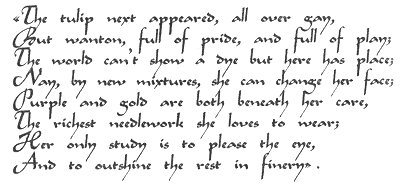 «The tulip next appeared, all over gay,
But wanton, full of pride, and full of play;
The world can't show a dye but here has place;
Nay, by new mixtures, she can change her face;
Purple and gold are both beneath her care,
The richest needlework she loves to wear;
Her only study is to please the eye,
And to outshine the rest in finery».